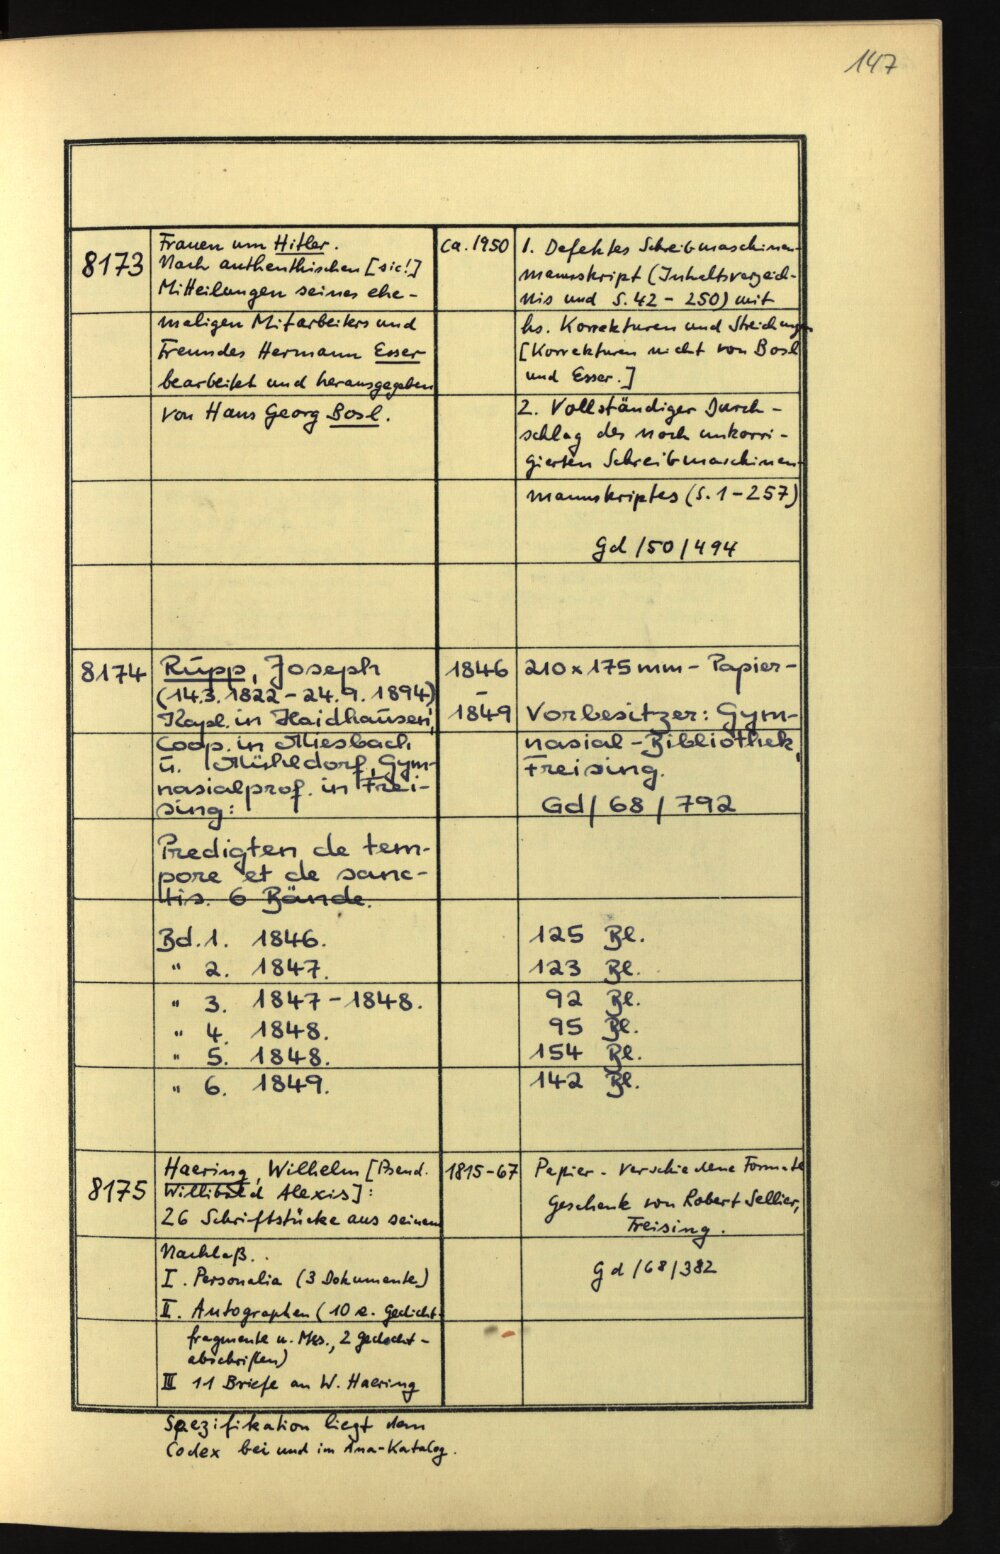 147
8173
Frauen um Hitler.
Nach authenthischen [sic!]
Mitteilungen seines ehe-
maligen Mitarbeiters und
Freundes Hermann Esser
bearbeitet und herausgegeben
von Hans Georg Bosl.
ca. 1950
1. Defektes Schreibmaschinen-
manuskript (Inhaltsverzeich-
nis und S. 42 - 250) mit
hs. Korrekturen und Streichungen
[Korrekturen nicht von Bosl
und Esser.]
2. Vollständiger Durch-
schlag des noch unkorri-
gierten Schreibmaschinen-
manuskriptes (S. 1 - 257)
Gd /50/494
8174
Rupp, Joseph
(14.3.1822 - 24.9.1894)
Kapl. in Haidhausen,
Coop. in Miesbach
u. Mühldorf, Gym-
nasialprof. in Frei-
sing:
Predigten de tem-
pore et de sanc-
tis. 6 Bände.
Bd. 1. 1846.
" 2. 1847.
" 3. 1847 - 1848.
" 4. 1848.
" 5. 1848.
" 6. 1849.
1846
-
1849
210 x 175 mm - Papier -
Vorbesitzer: Gym-
nasial-Bibliothek,
Freising.
Gd/ 68 / 792
125 Bl.
123 Bl.
92 Bl.
95 Bl.
154 Bl.
142 Bl.
8175
Haering, Wilhelm [Pseud.
Willibald Alexis]:
26 Schriftstücke aus seinem
Nachlaß.
I. Personalia (3 Dokumente)
II. Autographen (10 e. Gedicht-
fragmente u. Mss., 2 Gedicht-
abschriften)
III 11 Briefe an W. Haering
Spezifikation liegt dem
Codex bei und im Ana-Katalog.
1815-67
Papier - verschiedene Formate
Geschenk von Robert Sellier,
Freising.
Gd /68/382